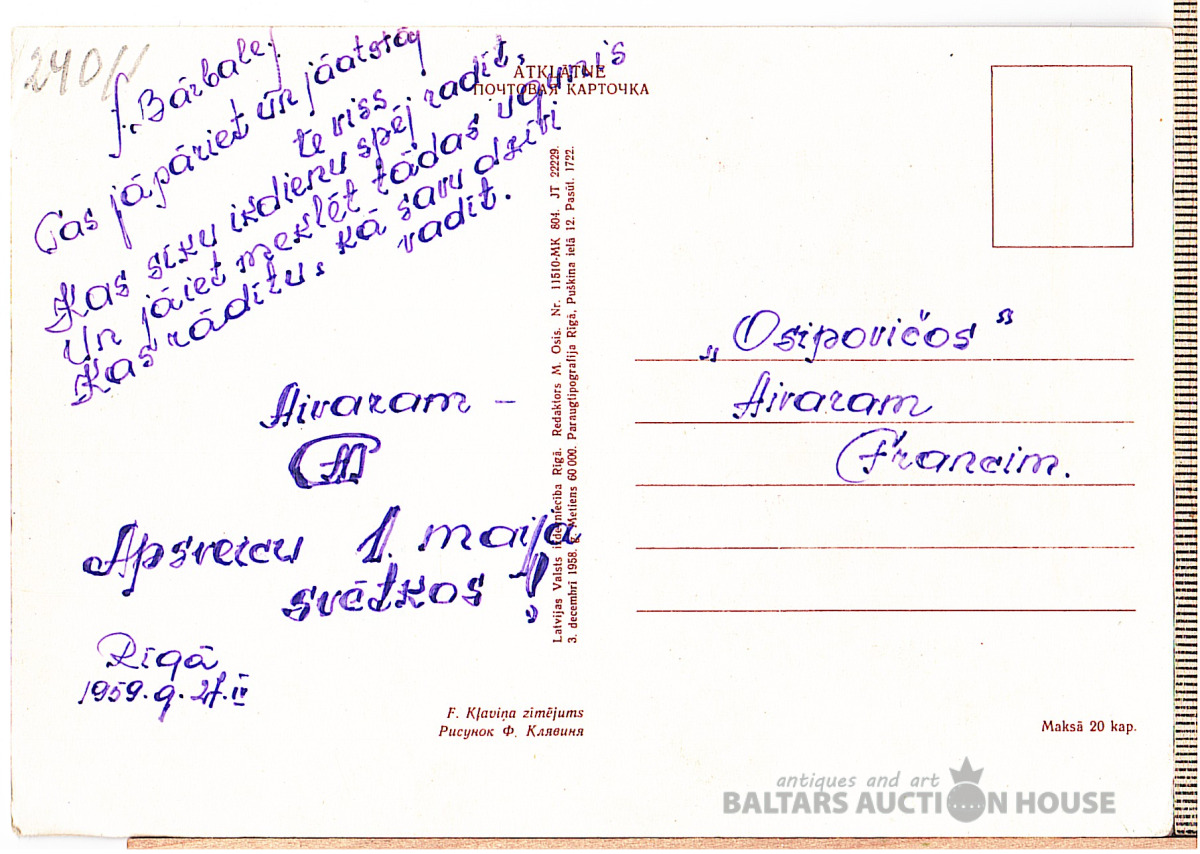 240
f. Bārbale.
Tas jāpāriet un jāatstāj
te viss
Kas sīku ikdienu spēj radīt,
Un jāiet meklēt tādas ugunis
Kas rādītu, kā savu dzīvi
vadīt.
Aivaram –
Apsveicu 1. maija
svētkos!
Rīgā
1959. g. 27. IV
F. Kļaviņa zīmējums
Рисунок Ф. Клявиня
ATKLĀTNE
ПОЧТОВАЯ КАРТОЧКА
Latvijas Valsts izdevniecība Rīgā. Redaktors M. Osis. Nr. 11510-MK 804. JT 22229.
3. decembrī 1958. g. Metiens 60 000. Paraugtipogrāfija Rīgā, Puškina ielā 12. Pasūt. 1722.
„Osipovičos"
Aivaram
Francim.
Maksā 20 kap.
antiques and art
BALTARS AUCTION HOUSE